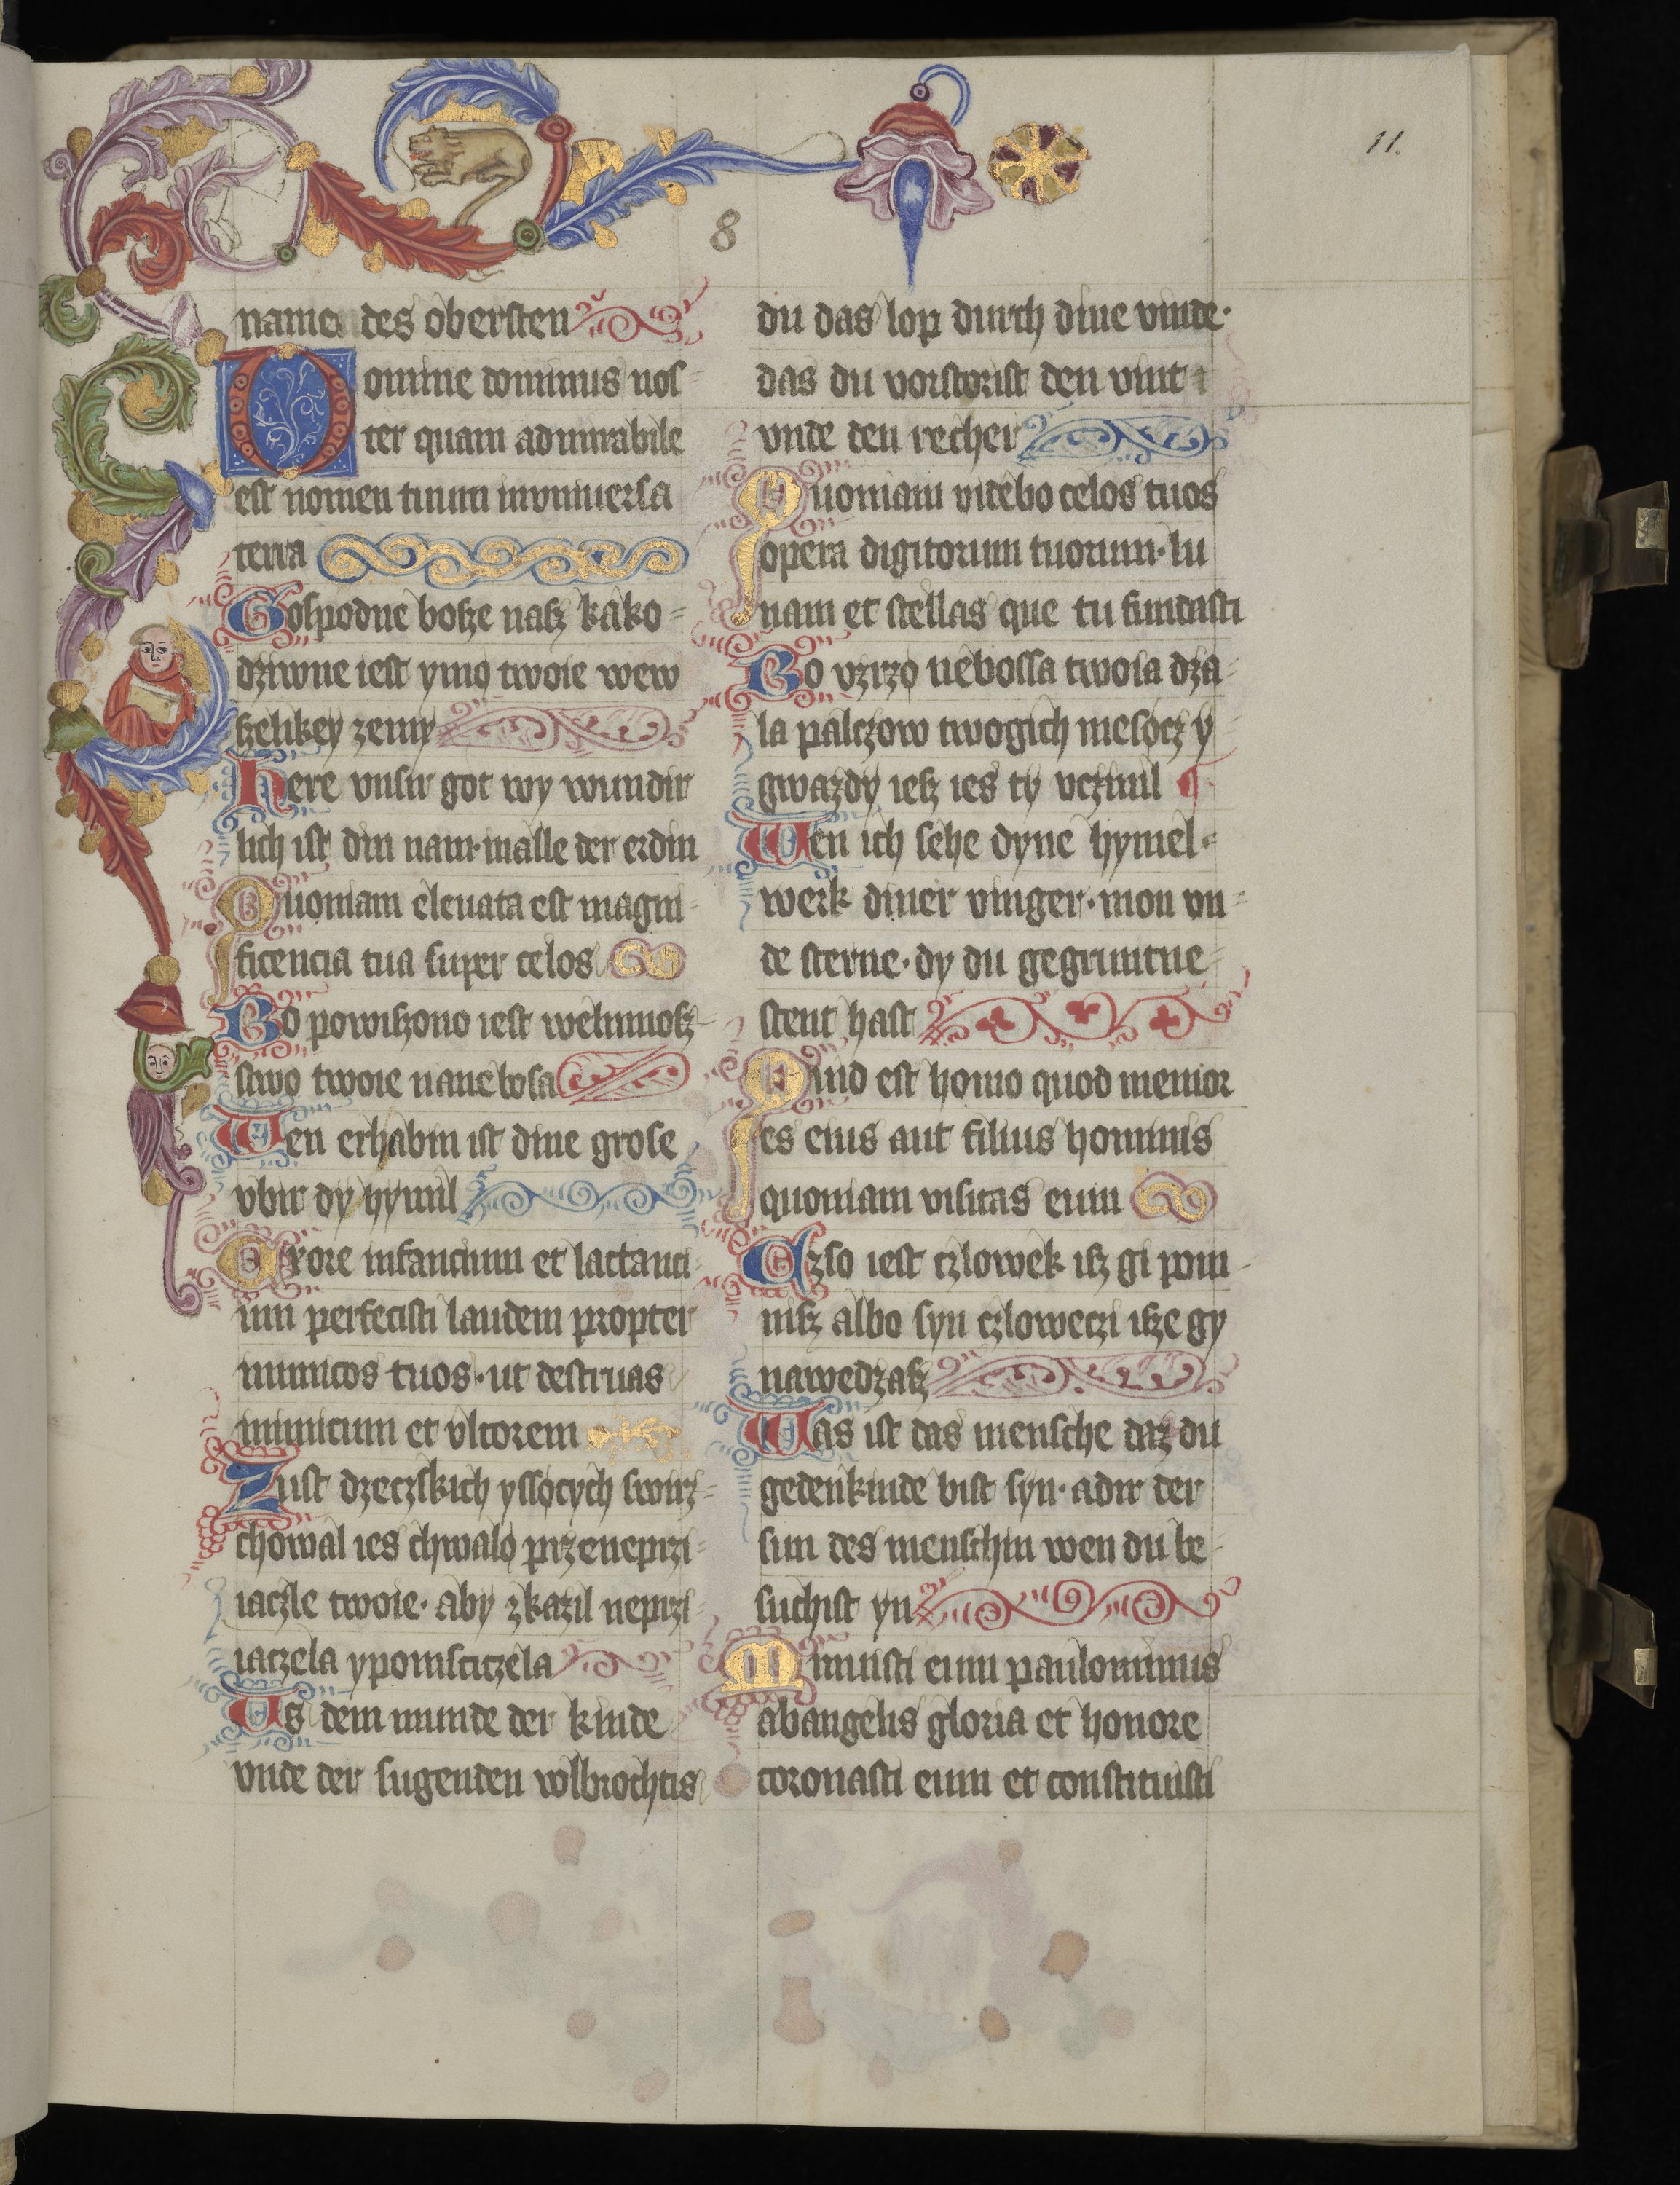 11.
8
name des obersten
Domine dominus nos
ter quam admirabile
est nomen tuum in vniuersa
terra
Gospodne bosze nasz kako
dziwne iest ymø twoie wew
szelikey zemy
Here vnsir got wy wundir
lich ist din nam· in alle der erdin
Quoniam eleuata est magni
ficencia tua super celos
Bo powiszono iest welmnosz
stwo twoie na nebosa
Wen erhabin ist dine grose
vbir dy hymil
Ex ore infancium et lactanci
um perfecisti laudem propter
inimicos tuos· ut destruas
inimicum et vltorem
Z ust dzeczskich y ssøcych swirz
chowal ies chwalø prze neprzi
iaczle twoie· aby zkazil neprzi
iaczela y pomsciczela
Us dem munde der kinde
vnde der sugenden volbrochtis
du das lop durch dine vinde·
das du vorstorist den vint
vnde den recher
Quoniam videbo celos tuos
opera digitorum tuorum· lu
nam et stellas que tu fundasti
Bo vzrzø nebossa twoia dza
la palczow twogich mesøcz y
gwazdy iesz ies ty vczinil
Wen ich sehe dyne hymel·
werk diner vinger· mon vn
de sterne· dy du gegruntue
stent hast
Quid est homo quod memor
es eius aut filius hominis
quoniam visitas eum
Czso iest czlowek isz gi pom
nisz albo syn czloweczi isze gy
nawedzasz
Was ist das mensche daz du
gedenkinde bist syn· adir der
sun des menschin wen du be
suchist yn
Minuisti eum paulominus
ab angelis gloria et honore
coronasti eum et constituisti